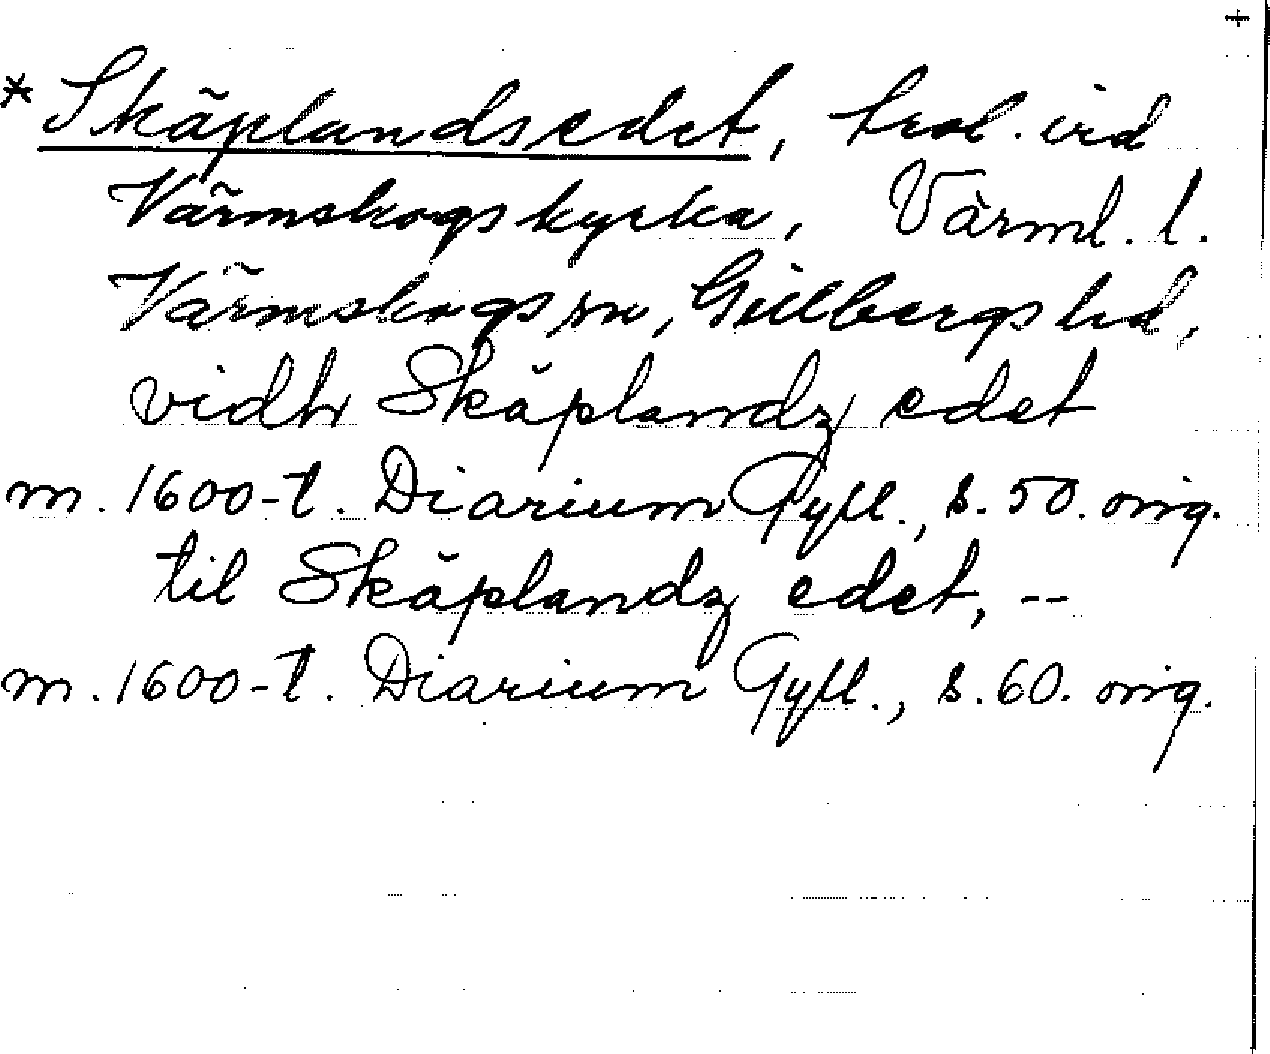 +
* Skäplandsedet, trol. vid
Värmskogs kyrka, Värml. l.
Värmskogs sn, Gillbergs hd,
vidh Skäplandz edet
m. 1600-t. Diarium Gyll., s. 50. orig.
til Skäplandz edet, --
m. 1600-t. Diarium Gyll., s. 60. orig.